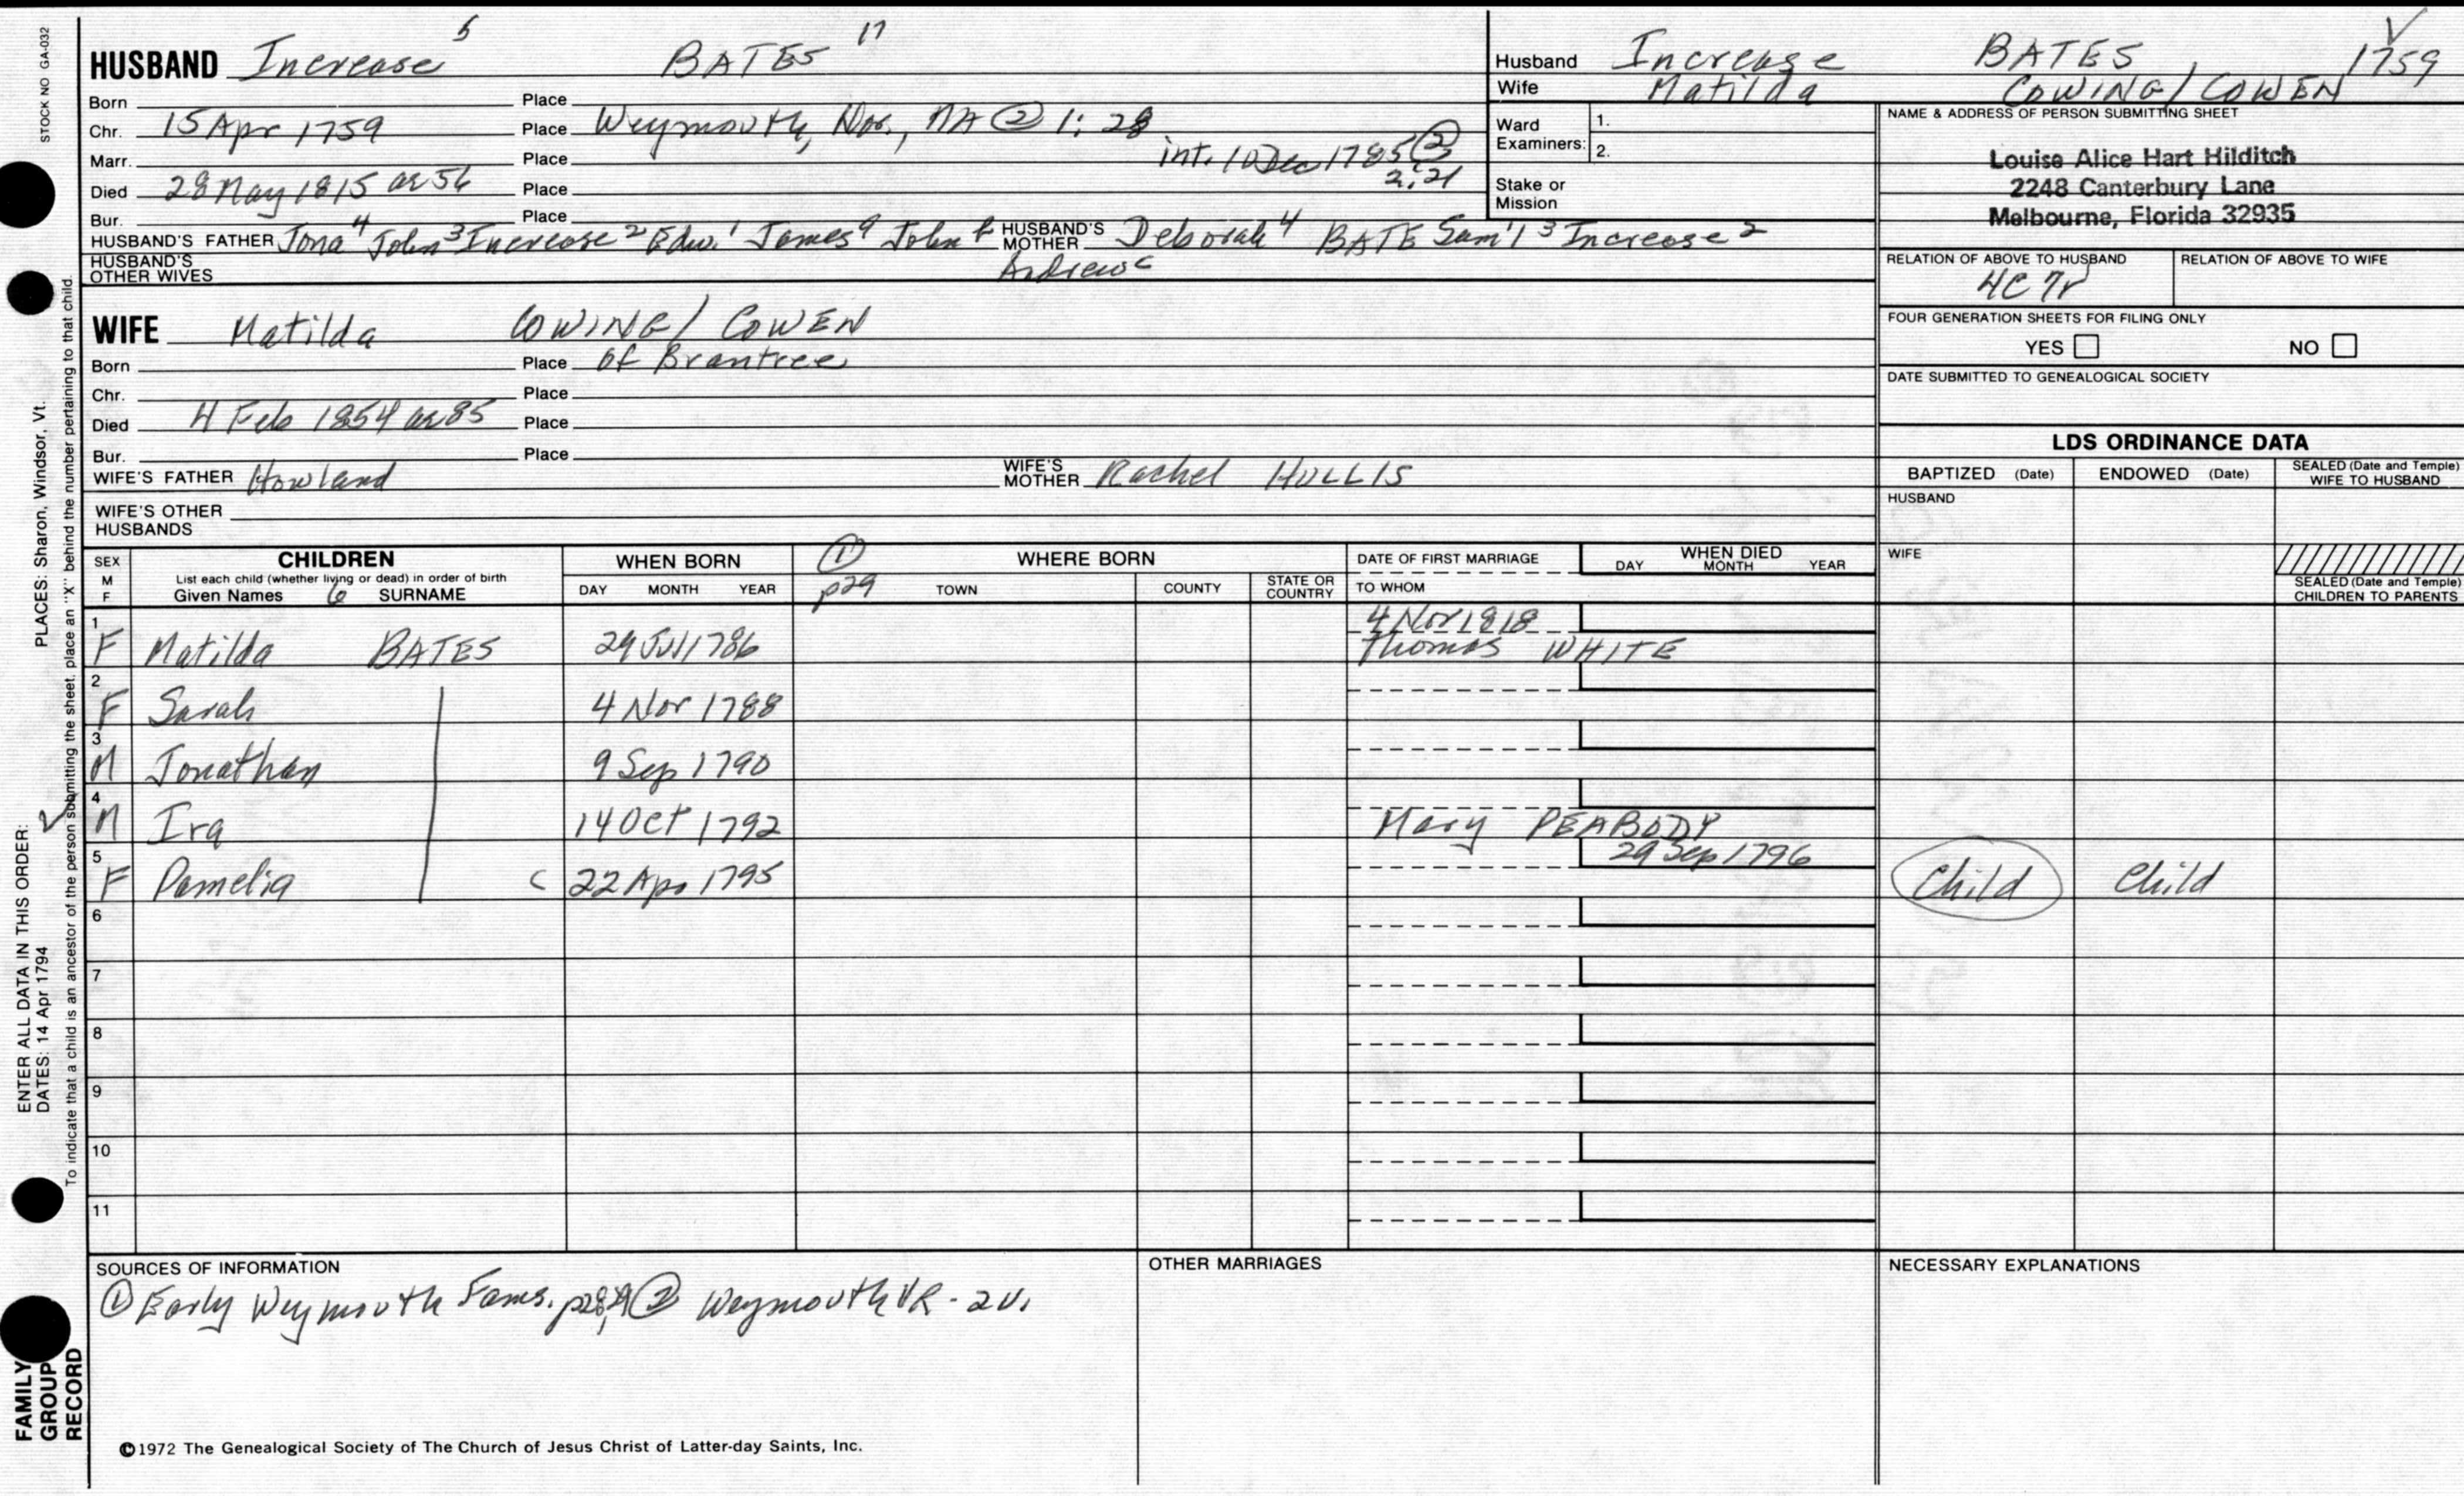 STOCK NO GA-032
HUSBAND Increase 5 BATES 17
Born Place
Chr. 15 Apr 1759 Place Weymouth, Nor., MA ② 1:28
Marr. Place int. 10 Dec 1785 ② 2:21
Died 28 May 1815 ae 56 Place
Bur. Place
HUSBAND'S FATHER Jona 4 John 3 Increase 2 Edw. 1 James a John b Andrew c
HUSBAND'S MOTHER Deborah 4 BATE Sam'l 3 Increase 2
HUSBAND'S OTHER WIVES
WIFE Matilda COWING / COWEN
Born Place of Brantree
Chr. Place
Died 4 Feb 1854 ae 85 Place
Bur. Place
WIFE'S FATHER Howland
WIFE'S MOTHER Rachel HOLLIS
WIFE'S OTHER HUSBANDS
Husband Increase BATES 1759 √
Wife Matilda COWING / COWEN
Ward Examiners: 1. 2.
Stake or Mission
NAME & ADDRESS OF PERSON SUBMITTING SHEET
Louise Alice Hart Hilditch
2248 Canterbury Lane
Melbourne, Florida 32935
RELATION OF ABOVE TO HUSBAND RELATION OF ABOVE TO WIFE
4C 7r
FOUR GENERATION SHEETS FOR FILING ONLY
YES NO
DATE SUBMITTED TO GENEALOGICAL SOCIETY
LDS ORDINANCE DATA
BAPTIZED (Date) ENDOWED (Date) SEALED (Date and Temple) WIFE TO HUSBAND
HUSBAND
WIFE
SEALED (Date and Temple) CHILDREN TO PARENTS
SEX M F CHILDREN WHEN BORN ① WHERE BORN DATE OF FIRST MARRIAGE WHEN DIED
List each child (whether living or dead) in order of birth
Given Names 6 SURNAME DAY MONTH YEAR p29 TOWN COUNTY STATE OR COUNTRY TO WHOM DAY MONTH YEAR
1 4 Nov 1818
F Matilda BATES 29 Jul 1786 Thomas WHITE
2
F Sarah 4 Nov 1788
3
M Jonathan 9 Sep 1790
4
√ M Ira 14 Oct 1792 Mary PEABODY
5 29 Sep 1796
F Pamelia c 22 Apr 1795 Child Child
6
7
8
9
10
11
SOURCES OF INFORMATION
① Early Weymouth Fams. p28,29 ② Weymouth VR - 2v.
OTHER MARRIAGES
NECESSARY EXPLANATIONS
©1972 The Genealogical Society of The Church of Jesus Christ of Latter-day Saints, Inc.
FAMILY GROUP RECORD
ENTER ALL DATA IN THIS ORDER:
DATES: 14 Apr 1794
PLACES: Sharon, Windsor, Vt.
To indicate that a child is an ancestor of the person submitting the sheet, place an "X" behind the number pertaining to that child.